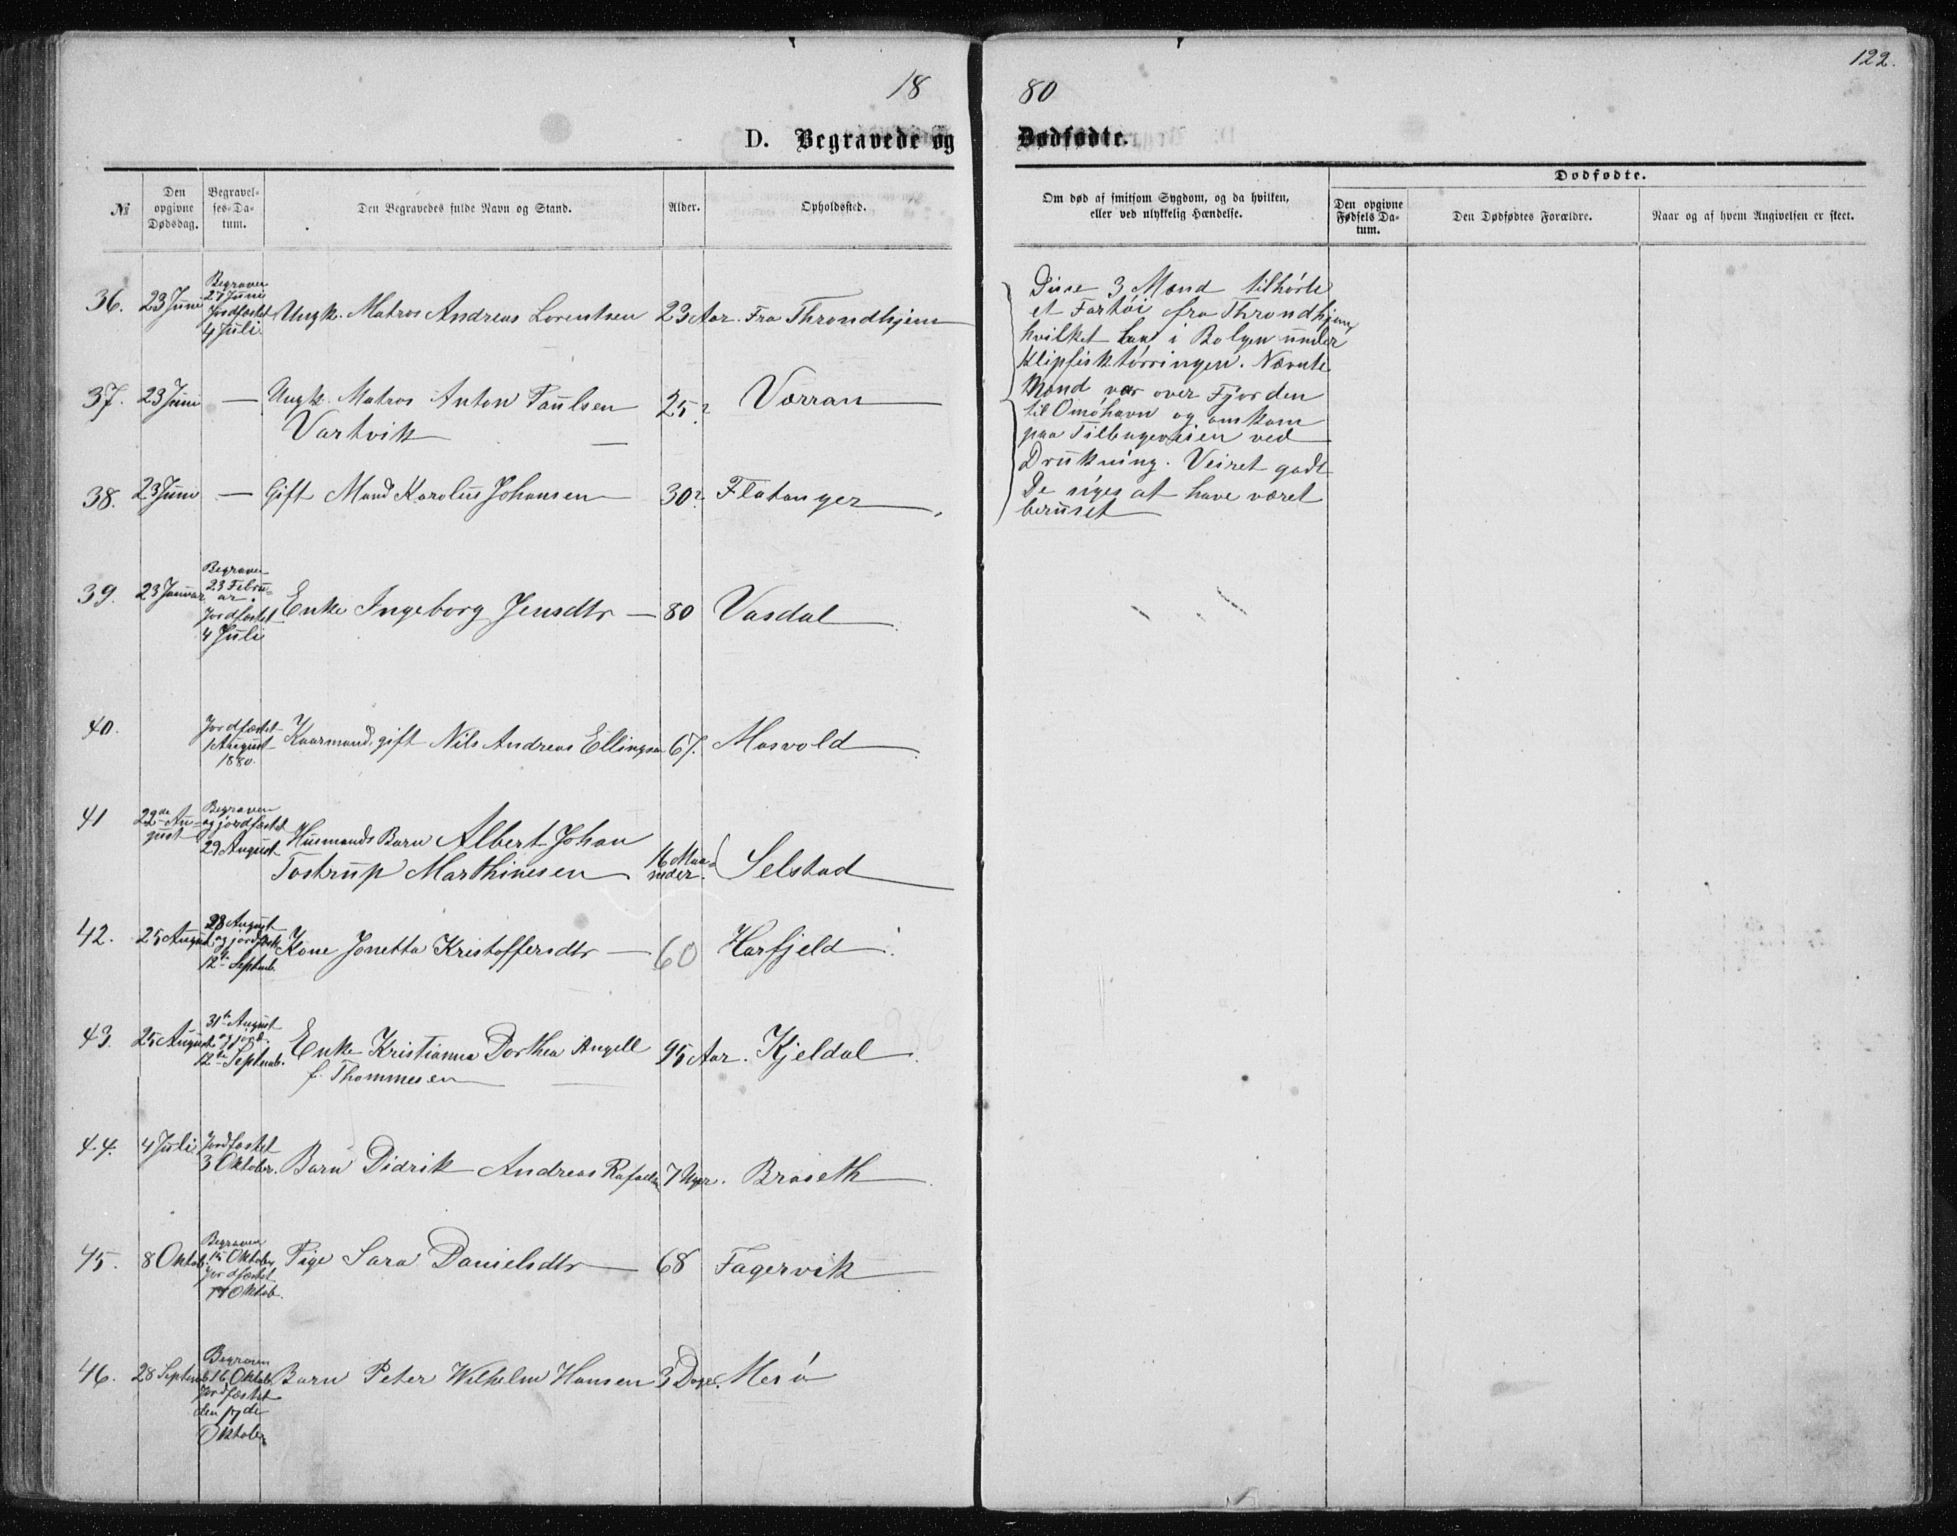 122.
18 80
D. Begravede og Dødfødte.
№
Den opgivne Dødsdag.
Begravelses-Datum.
Den Begravedes fulde Navn og Stand.
Alder.
Opholdssted.
Om død af smitsom Sygdom, og da hvilken, eller ved ulykkelig Hændelse.
Dødfødte.
Den opgivne Fødsels Datum.
Den Dødfødtes Forældre.
Naar og af hvem Angivelsen er skeet.
36. 23 Juni Begraven 27 Juni Jordfæstet 4 Juli Ungk. Matros Andreas Lorentsen 23 Aar. Fra Throndhjem
37. 23 Juni — Ungk. Matros Anton Paulsen 25? Værran
Vartvik
38. 23 Juni — Gift Mand Karolus Johansen 30? Flatanger
Disse 3 Mænd tilhørte
et Fartøi fra Throndhjem,
hvilket laa i Bølgen under
Klipfisktørringen. Nævnte
Mænd var over Fjorden
til Omøhavn og omkom
paa Tilbageveien ved
Drukning. Veiret godt
De siges at have været
beruset
39. 23 Januar Begraven 23 Februar. Jordfæstet 4 Juli Enke Ingeborg Jensdtr — 80 Vasdal
40. Jordfæstet 1 August 1880. Kaarmand, gift Nils Andreas Ellingsen 67. Masvold
41 22de August Begraven og jordfæstet 29 August Husmands Barn Albert Johan
Tostrup Marthinesen 16 Maaneder. Selstad
42. 25 August 28 August og jordfæstet 12te Septemb. Kone Jonetta Kristoffersdtr — 60 Harfjeld
43. 25 August 31te August og jord. 12te Septemb. Enke Kristianna Dorthea Angell 95 Aar. Kjeldal
f. Thommesen
44. 4 Juli Jordfæstet 3 Oktober. Barn Didrik Andreas Rafaelsen 7 Uger. Braseth
45. 8 Oktob. Begraven 15 Oktober Jordfæstet 17 Oktob. Pige Sara Danielsdtr 68 Fagervik
46. 28 Septemb. Begraven 16 Oktob. Jordfæstet den 17de Oktober Barn Peter Wilhelm Hansen 3 Dage. Merø